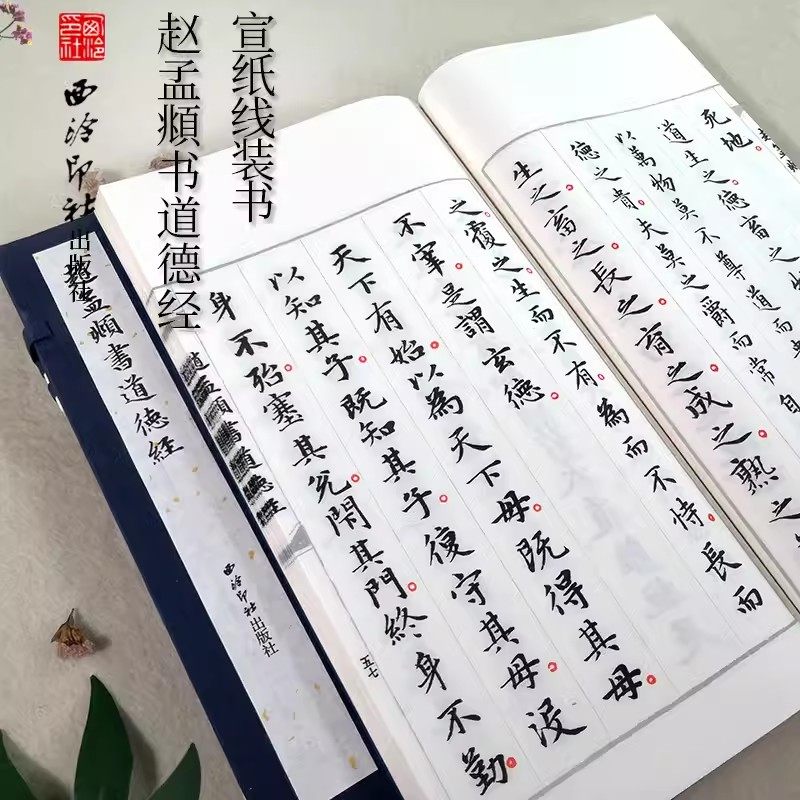 宣纸线装书
赵孟頫书道德经
西泠印社
西泠印社出版社
死地
道生之德畜之物
以萬物莫不尊道而
德之貴夫莫之爵而常自
生之畜之長之育之成之熟之
之覆之生而不有為而不恃長而
不宰是謂玄德
天下有始以為天下母既得其母
以知其子既知其子復守其母没
身不殆塞其兌閉其門終身不勤
趙孟頫書道德經
五七
趙孟頫書道德經
西泠印社出版社